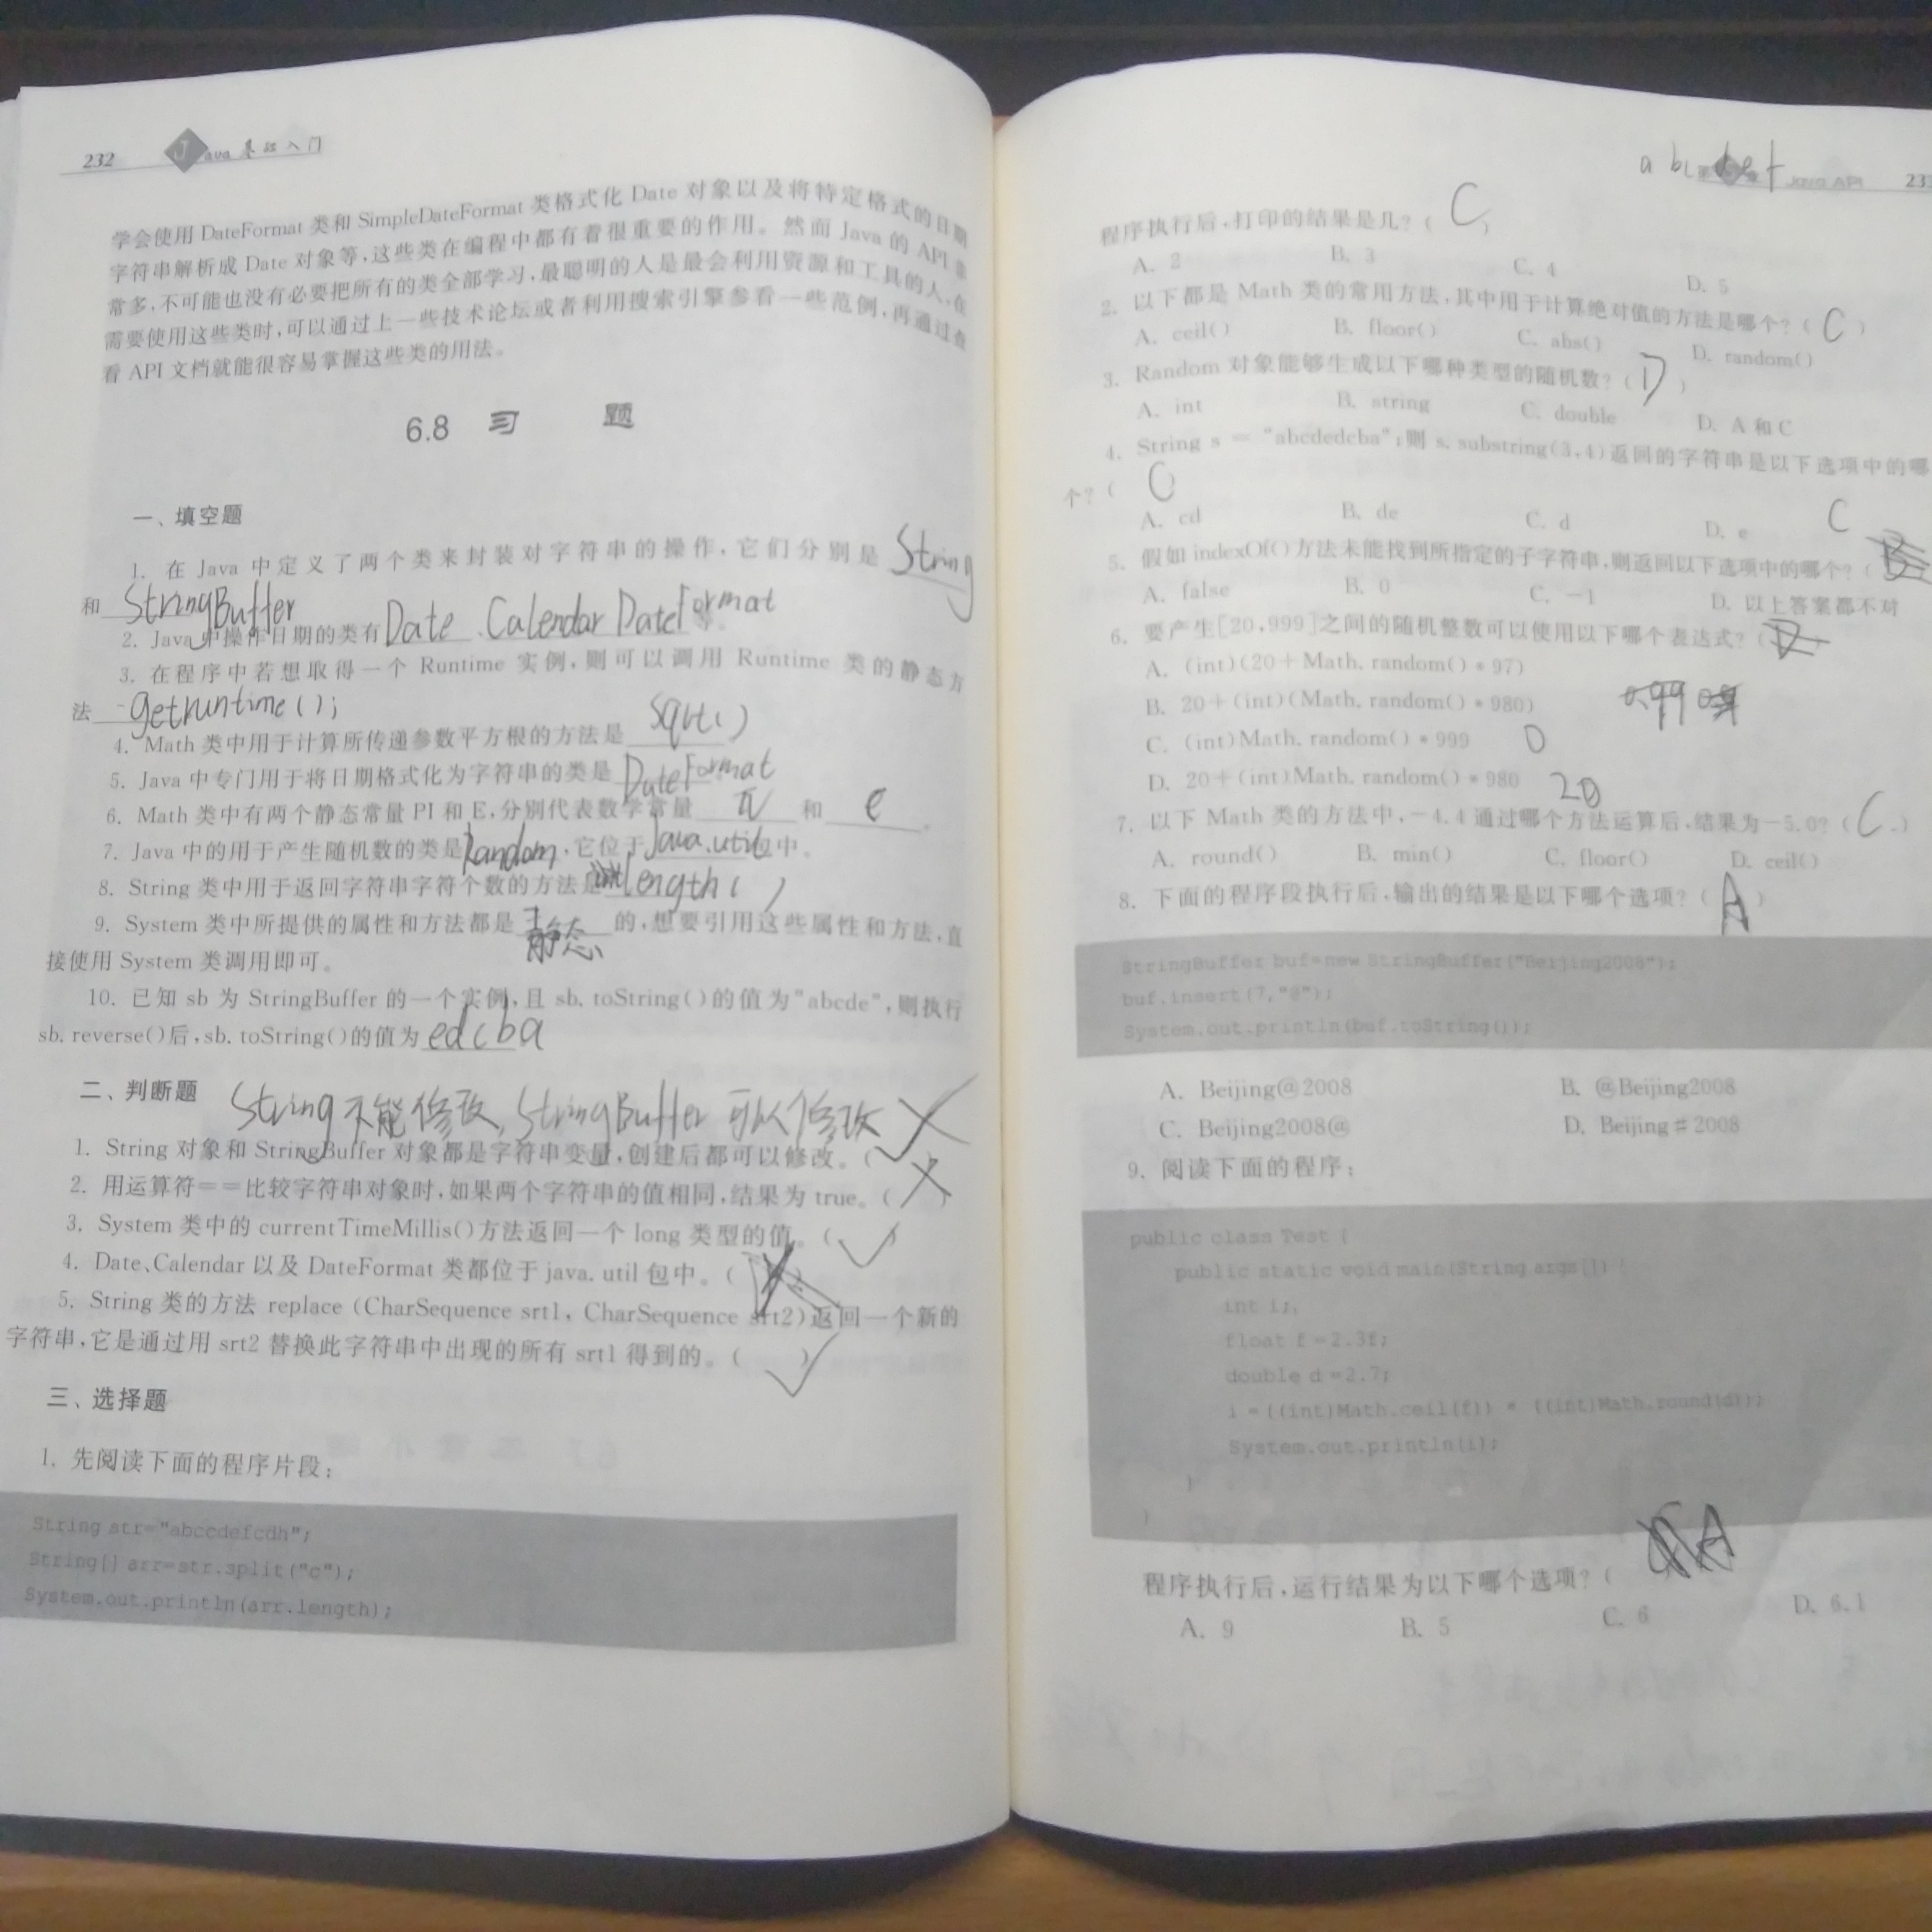 232 Java 基础入门
学会使用 DateFormat 类和 SimpleDateFormat 类格式化 Date 对象以及将特定格式的日期
字符串解析成 Date 对象等,这些类在编程中都有着很重要的作用。然而 Java 的 API 非
常多,不可能也没有必要把所有的类全部学习,最聪明的人是最会利用资源和工具的人,在
需要使用这些类时,可以通过上一些技术论坛或者利用搜索引擎参看一些范例,再通过查
看 API 文档就能很容易掌握这些类的用法。
6.8 习 题
一、填空题
1. 在 Java 中定义了两个类来封装对字符串的操作,它们分别是 String
和 StringBuffer
2. Java 中操作日期的类有 Date、Calendar DateFormat 等。
3. 在程序中若想取得一个 Runtime 实例,则可以调用 Runtime 类的静态方
法 getruntime();
4. Math 类中用于计算所传递参数平方根的方法是 sqrt()
5. Java 中专门用于将日期格式化为字符串的类是 DateFormat
6. Math 类中有两个静态常量 PI 和 E,分别代表数学常量 π 和 e 。
7. Java 中的用于产生随机数的类是 Random,它位于 Java.util 包中。
8. String 类中用于返回字符串字符个数的方法是 length()
9. System 类中所提供的属性和方法都是 静态 的,想要引用这些属性和方法,直
接使用 System 类调用即可。
10. 已知 sb 为 StringBuffer 的一个实例,且 sb. toString()的值为"abcde",则执行
sb. reverse()后,sb. toString()的值为 edcba
二、判断题
String不能修改,StringBuffer 可以修改 ×
1. String 对象和 StringBuffer 对象都是字符串变量,创建后都可以修改。( )
2. 用运算符==比较字符串对象时,如果两个字符串的值相同,结果为 true。( × )
3. System 类中的 currentTimeMillis()方法返回一个 long 类型的值。( √ )
4. Date、Calendar 以及 DateFormat 类都位于 java. util 包中。( × )
5. String 类的方法 replace (CharSequence srt1, CharSequence srt2)返回一个新的
字符串,它是通过用 srt2 替换此字符串中出现的所有 srt1 得到的。( √ )
三、选择题
1. 先阅读下面的程序片段:
String str="abccdefcdh";
String[] arr=str.split("c");
System.out.println(arr.length);
Java API 233
程序执行后,打印的结果是几?( C )
A. 2 B. 3 C. 4 D. 5
2. 以下都是 Math 类的常用方法,其中用于计算绝对值的方法是哪个?( C )
A. ceil() B. floor() C. abs() D. random()
3. Random 对象能够生成以下哪种类型的随机数?( D )
A. int B. string C. double D. A 和 C
4. String s = "abcdedcba";则 s. substring(3,4)返回的字符串是以下选项中的哪
个?( C
A. cd B. de C. d D. e
C
5. 假如 indexOf()方法未能找到所指定的子字符串,则返回以下选项中的哪个?( B
A. false B. 0 C. -1 D. 以上答案都不对
6. 要产生[20,999]之间的随机整数可以使用以下哪个表达式?(
A. (int)(20+Math. random() * 97)
B. 20+(int)(Math. random() * 980)
C. (int)Math. random() * 999 0
D. 20+(int)Math. random() * 980 20
7. 以下 Math 类的方法中,-4.4 通过哪个方法运算后,结果为-5.0?( C )
A. round() B. min() C. floor() D. ceil()
8. 下面的程序段执行后,输出的结果是以下哪个选项?( A )
StringBuffer buf=new StringBuffer("Beijing2008");
buf.insert(7,"@");
System.out.println(buf.toString());
A. Beijing@2008 B. @Beijing2008
C. Beijing2008@ D. Beijing#2008
9. 阅读下面的程序:
public class Test {
public static void main(String args[]) {
int i;
float f =2.3f;
double d =2.7;
i = ((int)Math.ceil(f)) * ((int)Math.round(d));
System.out.println(i);
}
}
程序执行后,运行结果为以下哪个选项?( A
A. 9 B. 5 C. 6 D. 6.1